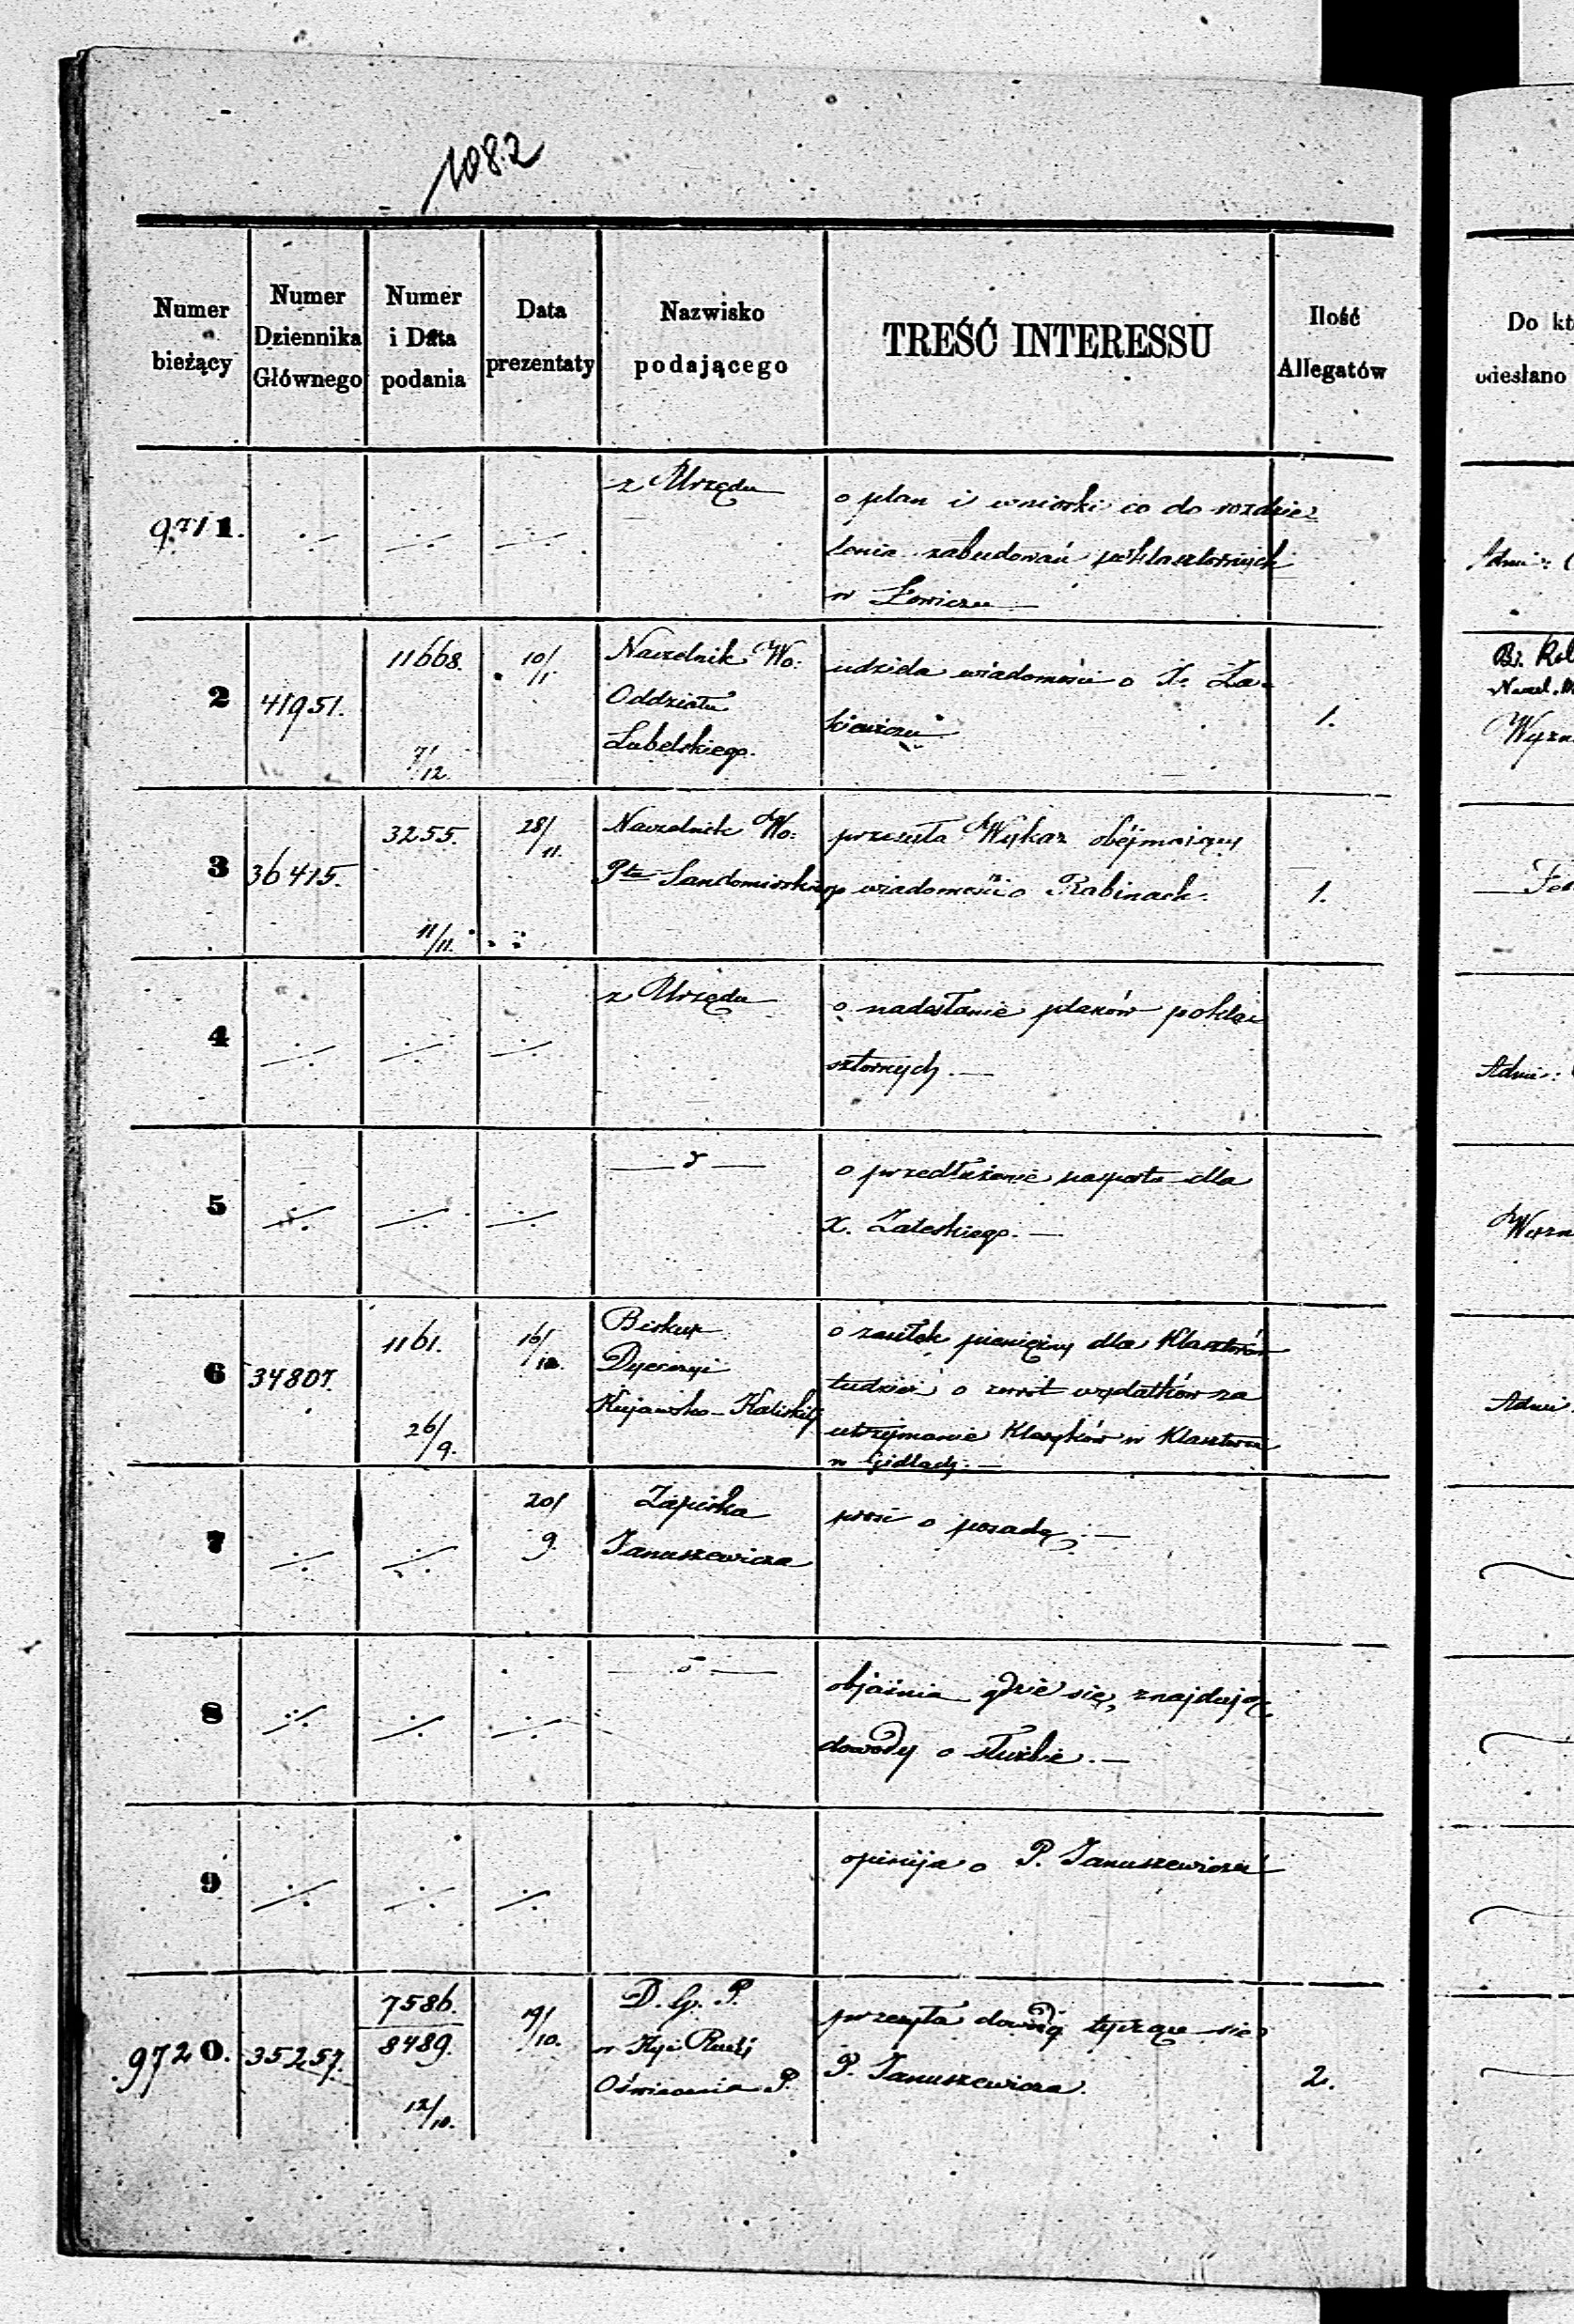 1082
Numer bieżący
Numer Dziennika Głównego
Numer i Data podania
Data prezentaty
Nazwisko podającego
TREŚĆ INTERESSU
Ilość Allegatów
Do kt
odesłano
9711.
z Urzędu
o plan i wnioski co do rozdzie=
lenia zabudowań poklasztornych
w Łowiczu
Admi:
2
41951.
11668.
7/12.
10/1.
Naczelnik Wo:
Oddziału
Lubelskiego.
udziela wiadomości o
1.
3
36415.
3255.
11/11.
28/11.
Naczelnik Wo:
Ptu Sandomierskiego
przesyła Wykaz obejmujący
wiadomości o Rabinach.
1.
4
z Urzędu
o nadesłanie planów pokla=
sztornych.
Admi:
5
o przedłużenie paszportu dla
X. Zaleskiego.
Wyzn
6
34807.
1161.
26/9.
16/
Biskup
Dyecezyi
Kujawsko-Kaliskiej
o zasiłek pieniężny dla Klasztorów
tudzież o zwrot wydatków za
utrzymanie Kleryków w Klasztorze
w Gidlach.
Admi
7
20/9.
Zapiska
Januszewicza
prosi o posadę.
8
objaśnia gdzie się znajdują
dowody o służbie.
9
opinija o P. Januszewiczu
9720.
35257.
7586.
8489.
12/10.
19/10.
D. G. P.
Oświecenia P.
przesyła dowody tyczące się
P. Januszewicza.
2.